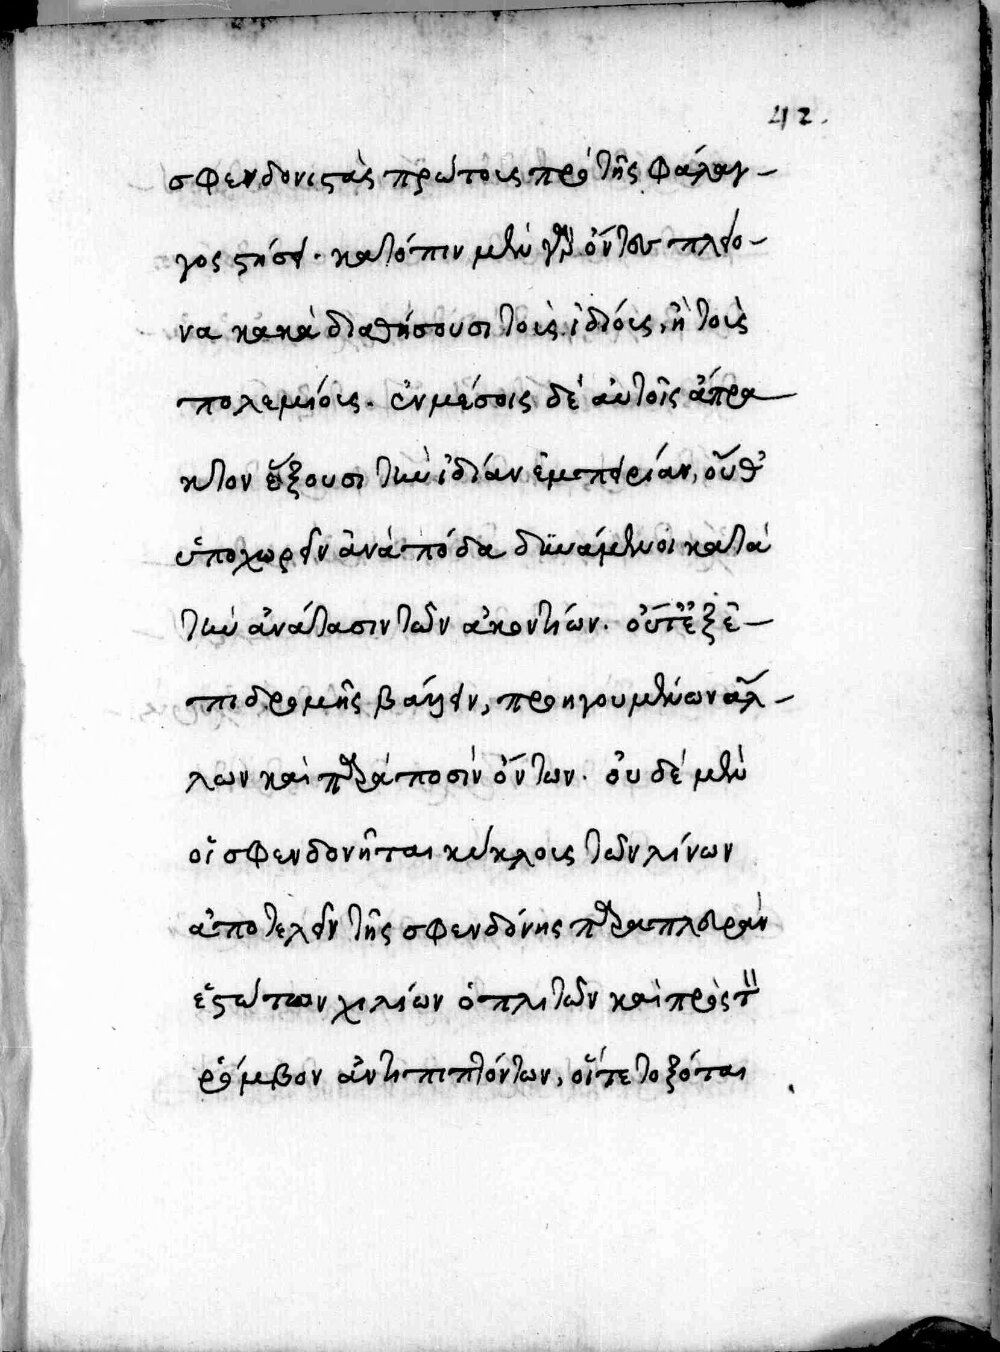 42.
σφενδονιστὰς πρώτοις πρὸ τῆς φάλαγ-
γος στήσει. κατόπιν μὲν γὰρ ὄντων πλείο-
να κακὰ διαθήσουσι τοὺς ἰδίοις, ἢ τοὺς
πολεμίοις. ἐν μέσοις δὲ αὐτοῖς ἄπρα
κτον ἕξουσι τὴν ἰδίαν ἐμπειρίαν, οὔθ'
ὑποχωρεῖν ἀνὰ πόδα δυνάμενοι κατὰ
τὴν ἀνάτασιν τῶν ἀκοντίων. οὔτ' ἐξ ἐ-
πιδρομῆς βάλλειν, προηγουμένων ἄλ-
λων καὶ παρὰ ποσὶν ὄντων. οὐ δὲ μὲν
οἱ σφενδονῆται κύκλοις τῶν λίνων
ἀποτελεῖν τῆς σφενδόνης παρὰ πλευρὰν
ἑστώτων χιλίων ὁπλιτῶν καὶ πρὸς τὸν
ῥόμβον ἀντιπιπτόντων, οἵ τε τοξόται